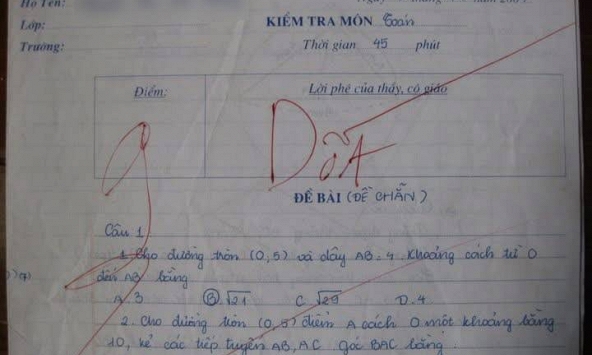 Họ Tên:
Lớp:
KIỂM TRA MÔN Toán
Trường:
Thời gian 45 phút
Điểm:
Lời phê của thầy, cô giáo
9
ĐỀ BÀI (ĐỀ CHẴN)
Câu 1
1. Cho đường tròn (0,5) và dây AB = 4. Khoảng cách từ O
đến AB bằng
A. 3 B. √21 C. √29 D. 4
2. Cho đường tròn (0,5) điểm A cách O một khoảng bằng
10, kẻ các tiếp tuyến AB, AC góc BAC bằng